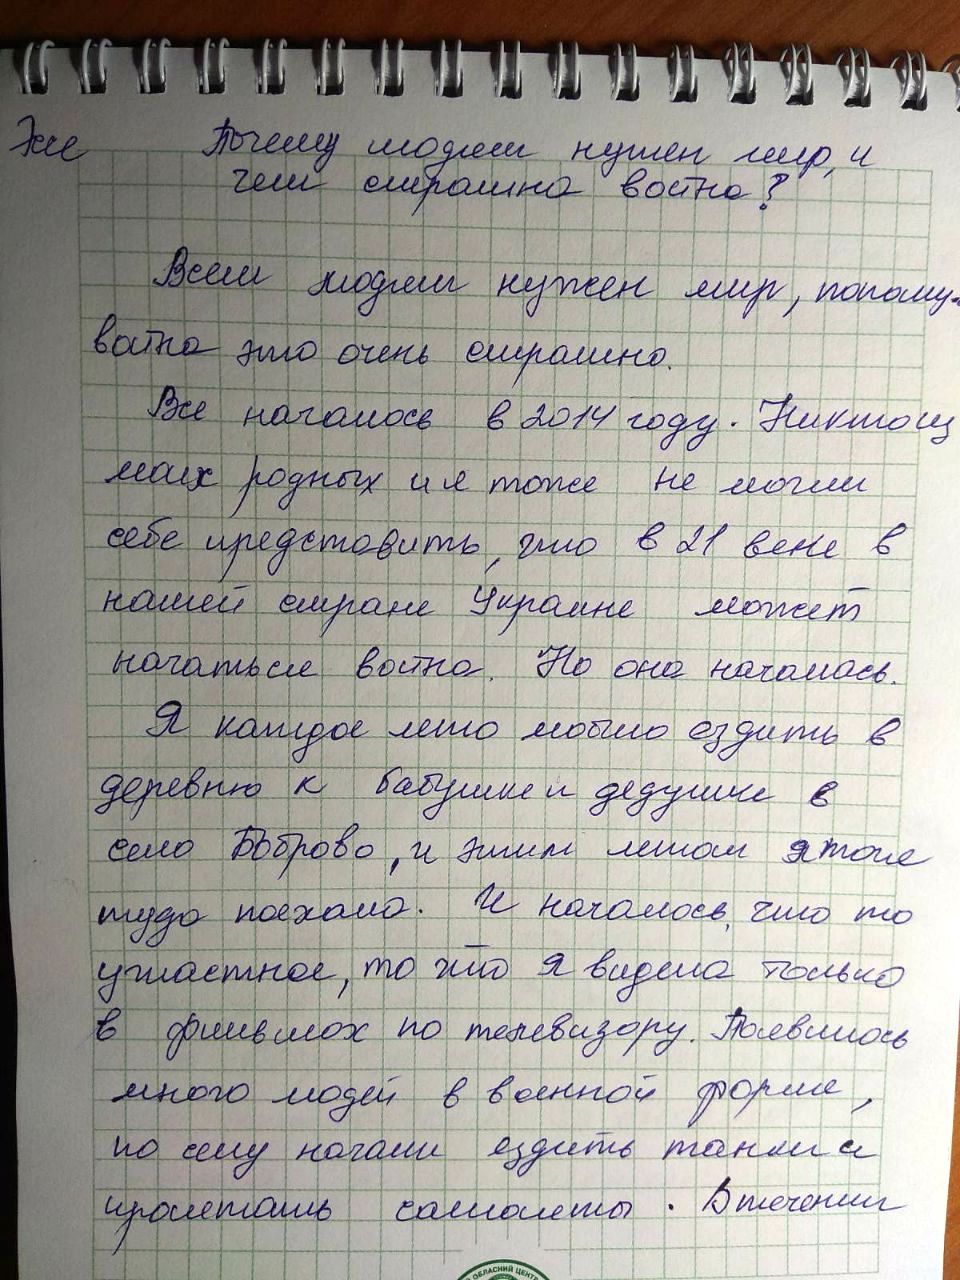 Эссе Почему людям нужен мир, и
чем страшна война?
Всем людям нужен мир, потому
война это очень страшно.
Все началось в 2014 году. Никто из
моих родных и я тоже не могли
себе представить, что в 21 веке в
нашей стране Украине может
начаться война. Но она началась.
Я каждое лето любила ездить в
деревню к бабушке и дедушке в
село Боброво, и этим летом я тоже
туда поехала. И началось что то
ужастное, то что я видела только
в фильмах по телевизору. Появилось
много людей в военной форме,
по селу начали ездить танки и
пролетать самолеты. В течении
ОБЛАСНИЙ ЦЕНТР